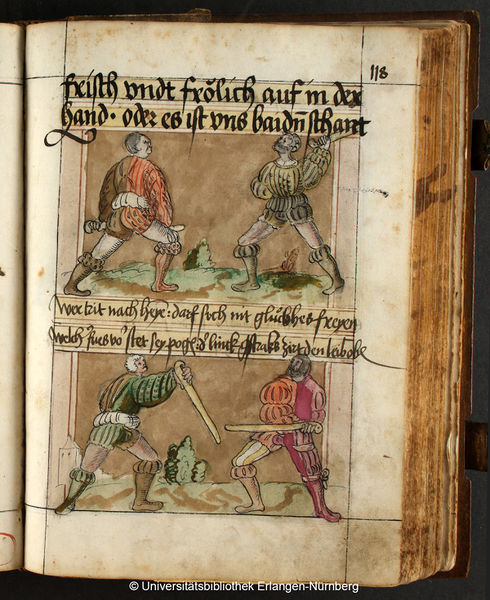 118
frisch vndt frölich auf in der
hand · oder es ist vns baiden schant
Wer trit nach heẅ: darf sich nit glückhes freyen
Welch fues vor stet sey poge: d' linck gstrakt ziert den leib obe
© Universitätsbibliothek Erlangen-Nürnberg